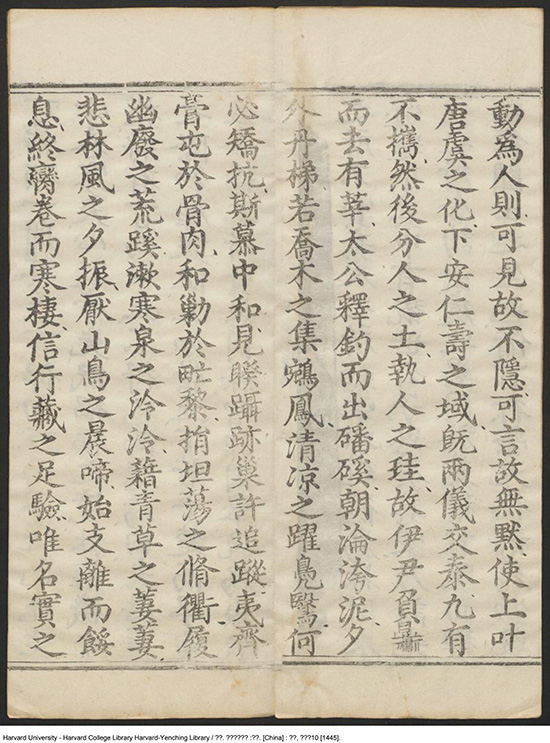 動爲人則可見故不隱可言故無黙使上叶
唐虞之化下安仁壽之域旣兩儀交泰九有
不攜然後分人之土執人之珪故伊尹負鼎
而去有莘太公釋釣而出磻磎朝淪洿泥夕
外丹梯若喬木之集鵷鳳清凉之躍鳧鷖何
必矯抗斯慕中和見睽躡跡巢許追蹤夷齊
膏屯於骨肉和勦於甿黎捐坦蕩之脩衢履
幽廢之荒蹊漱寒泉之泠泠藉青草之萋萋
悲林風之夕振厭山鳥之晨啼始支離而餒
息終臠卷而寒棲信行藏之足驗唯名實之
Harvard University - Harvard College Library Harvard-Yenching Library / ??. ?????? :??. [China] : ??, ???10 [1445].